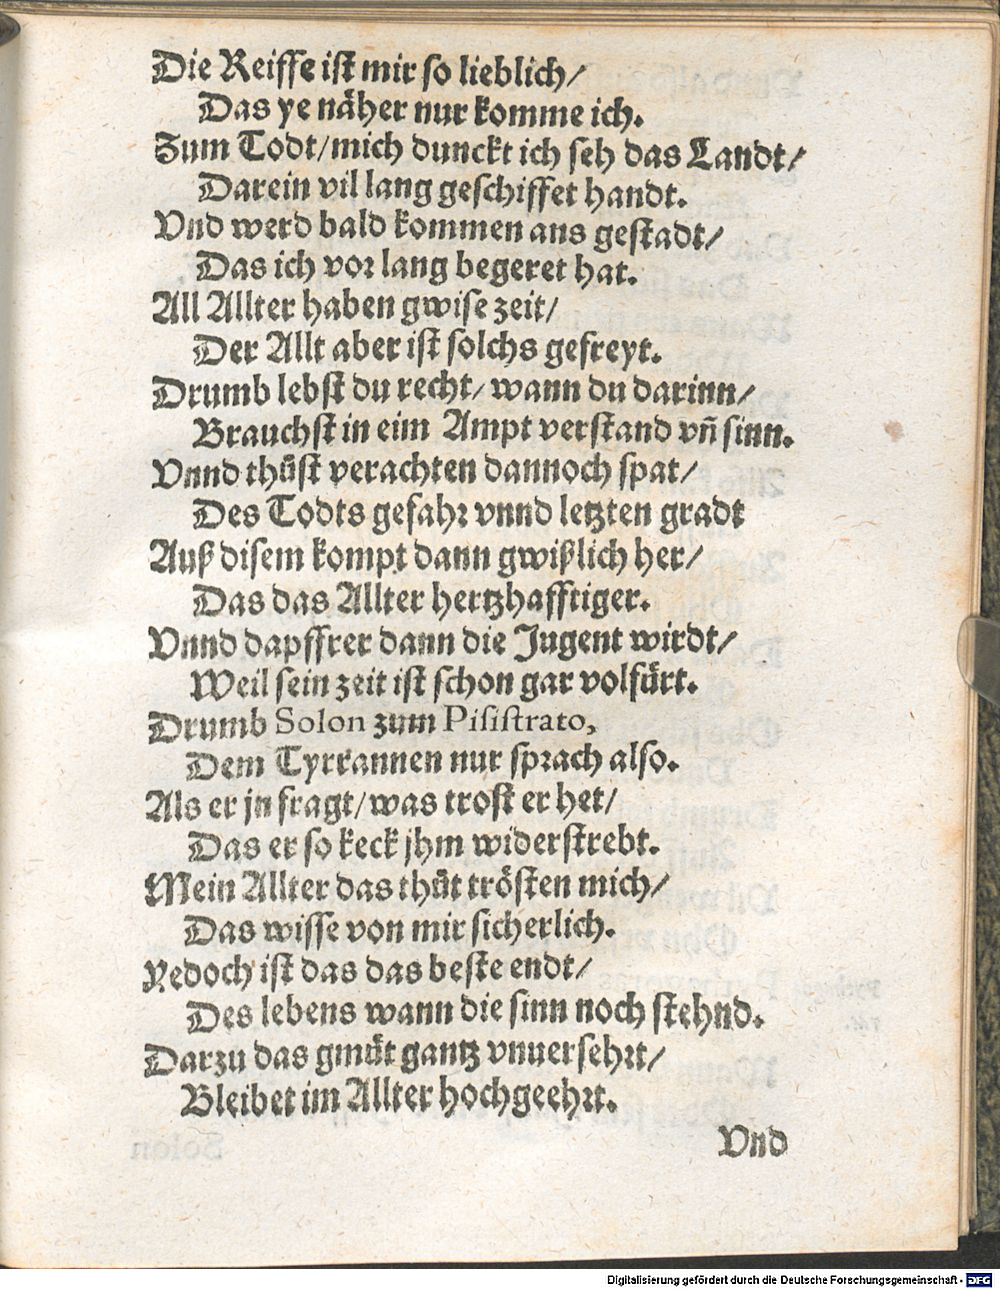 Die Reiffe ist mir so lieblich/
Das ye näher nur komme ich.
Zum Todt/mich dunckt ich seh das Landt/
Darein vil lang geschiffet handt.
Vnd werd bald kommen ans gestadt/
Das ich vor lang begeret hat.
All Allter haben gwise zeit/
Der Allt aber ist solchs gefreyt.
Drumb lebst du recht/ wann du darinn/
Brauchst in eim Ampt verstand vñ sinn.
Vnnd thůst verachten dannoch spat/
Des Todts gefahr vnnd letzten gradt
Auß disem kompt dann gwißlich her/
Das das Allter hertzhafftiger.
Vnnd dapffrer dann die Jugent wirdt/
Weil sein zeit ist schon gar volfürt.
Drumb Solon zum Pisistrato,
Dem Tyrrannen nur sprach also.
Als er jn fragt/was trost er het/
Das er so keck jhm widerstrebt.
Mein Allter das thůt trösten mich/
Das wisse von mir sicherlich.
Yedoch ist das das beste endt/
Des lebens wann die sinn noch stehnd.
Darzu das gmüt gantz vnuersehrt/
Bleibet im Allter hochgeehrt.
Vnd
Digitalisierung gefördert durch die Deutsche Forschungsgemeinschaft - DFG